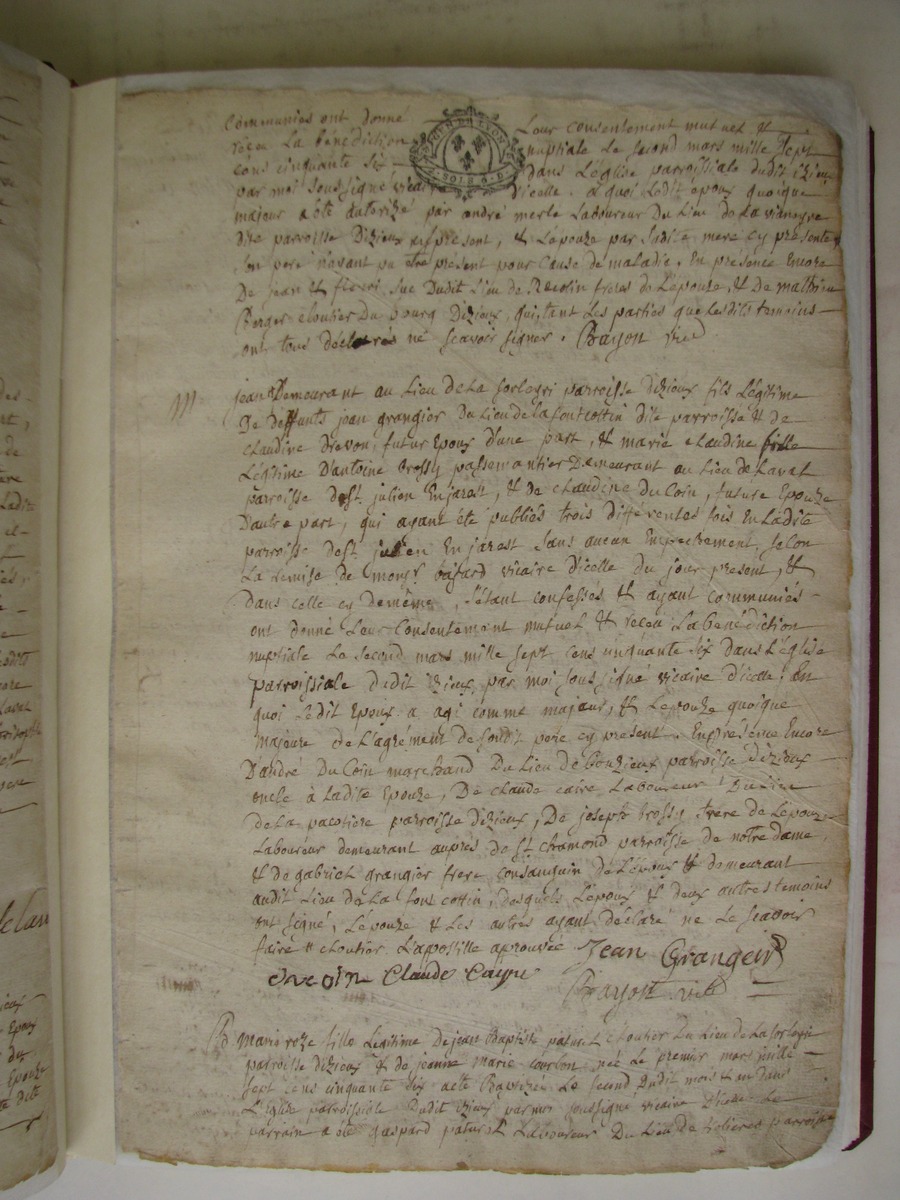 Communiés ont donné Leur consentement mutuel &
reçeu La benediction nuptiale Le second mars mille Sept
cens cinquante six dans L'église parroissiale dudit izieux
par moi soussigné vicaire d'icelle. a quoi Ledit époux quoique
majeur a été autorizé par andré merle Laboureur Du Lieu de La
dite parroisse d'izieux present, & L'epouze par sadite mere cy presente
son pere n'ayant pu etre present pour cause de maladie. En presence Encore
De jean & fleuri Duc Dudit Lieu de freres de L'epouze, & De mathieu
Berger cloutier Du bourg D'izieux, qui tant Les parties que Lesdits temoins
ont tous déclarés ne scavoir signer. Bayon vic
M. jean Demeurant au Lieu de La parroisse d'izieux fils Légitime
De deffunts jean grangier Du Lieu de la font cottin dite parroisse & de
claudine Drevon, futur Epoux d'une part, & marie claudine fille
Légitime D'antoine brossy passemantier Demeurant au Lieu de Lavat
parroisse de st. julien En jarest, & De claudine Du Coin, future Epouze
D'autre part, qui ayant été publiés trois differentes fois En Ladite
parroisse de st julien En jarest sans aucun Empechement, selon
La remise de monsr. vicaire d'icelle du jour present, &
dans celle cy de même, s'étant confessés & ayant communiés
ont donné Leur Consentement mutuel & reçeu La benédiction
nuptiale Le second mars mille sept cens cinquante six dans L'église
parroissiale dudit izieux, par moi sous signé vicaire d'icelle. En
quoi Ledit Epoux a agi comme majeur, & L'epouze quoique
majeure de L'agrément de sondit pere cy present. En présence Encore
D'andré Du Coin marchand Du Lieu de parroisse d'izieux
oncle à Ladite Epouze, De claude caire Laboureur Du Lieu
de La pacotiere parroisse d'izieux, De joseph brossy frere de L'epouze
Laboureur demeurant auprés de st chamond parroisse de notre dame,
& de gabriel grangier frere consanguin de L'époux & demeurant
audit Lieu de La font cottin, desquels L'époux & deux autres temoins
ont signé, L'épouze & Les autres ayant déclaré ne Le scavoir
faire cloutier L'apostille aprouvée Jean Grangeir
Claude Cayre
Bayon vic
B marie roze fille Légitime De jean Baptiste paturel cloutier Du Lieu de
parroisse d'izieux & de jeanne marie née Le premier mars mille
sept cens cinquante six a été Baptizée Le second dudit mois & an dans
L'église parroissiale Dudit izieux par moi soussigné vicaire d'icelle Le
parrain a été gaspard paturel Laboureur Du Lieu De parroisse